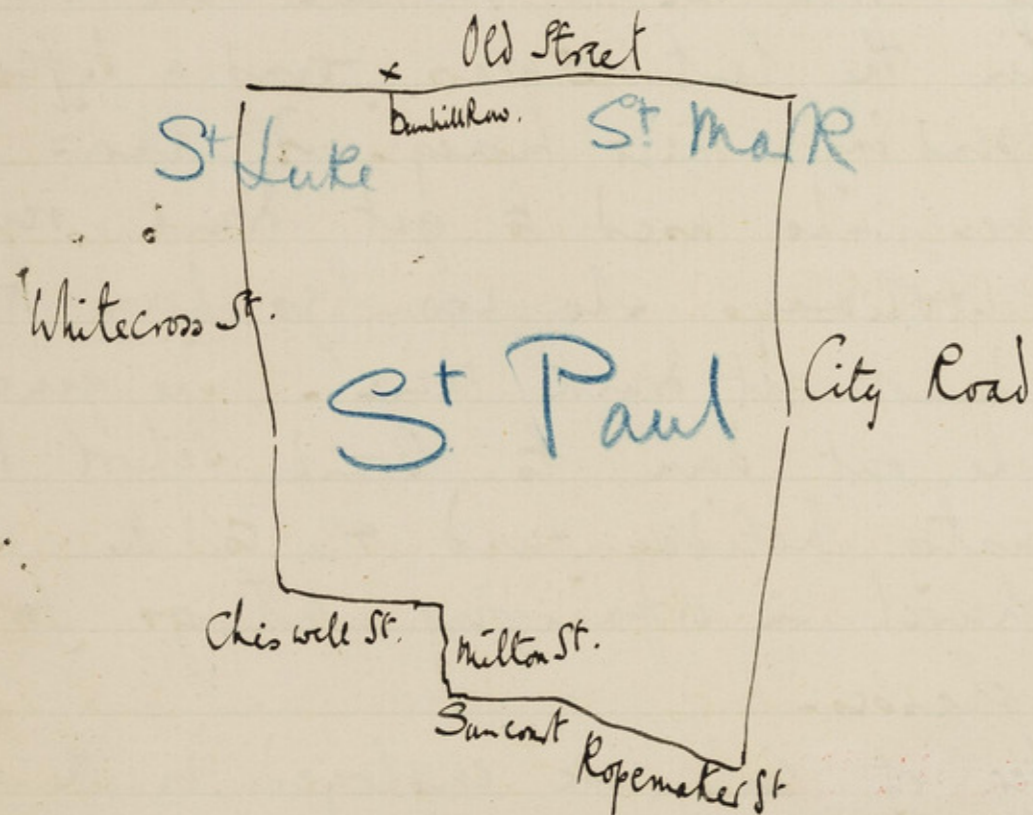 Old Street
x
Bunhill Row.
St Luke
St Mark
Whitecross St.
St Paul
City Road
Chiswell St.
Milton St.
Suncourt
Ropemaker St